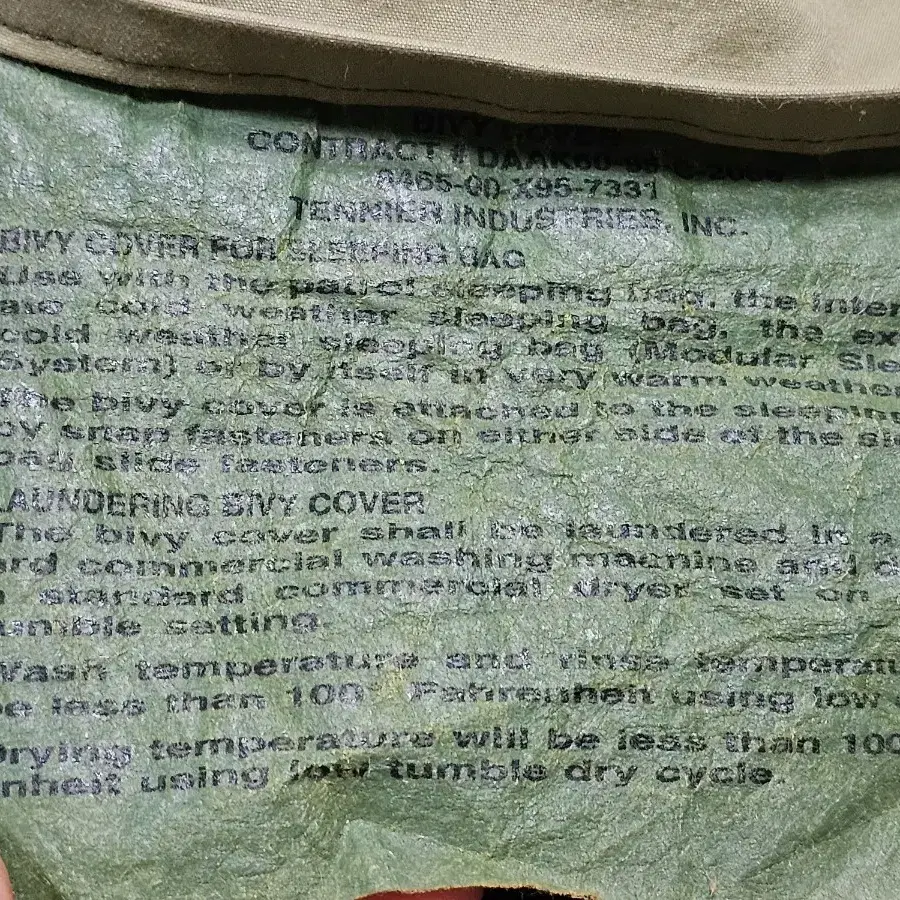 BIVY COVER
CONTRACT # DAAK60-95-C-20
8465-00-X95-7331
TENNIER INDUSTRIES, INC.
BIVY COVER FOR SLEEPING BAG
Use with the patrol sleeping bag, the inter
ate cold weather sleeping bag, the ex
cold weather sleeping bag (Modular Sle
System) or by itself in very warm weather
The bivy cover is attached to the sleeping
by snap fasteners on either side of the sle
bag slide fasteners.
LAUNDERING BIVY COVER
The bivy cover shall be laundered in a
ard commercial washing machine and d
standard commercial dryer set on
umble setting.
Wash temperature and rinse temperatu
be less than 100° Fahrenheit using low
Drying temperature will be less than 100
nheit using low tumble dry cycle.